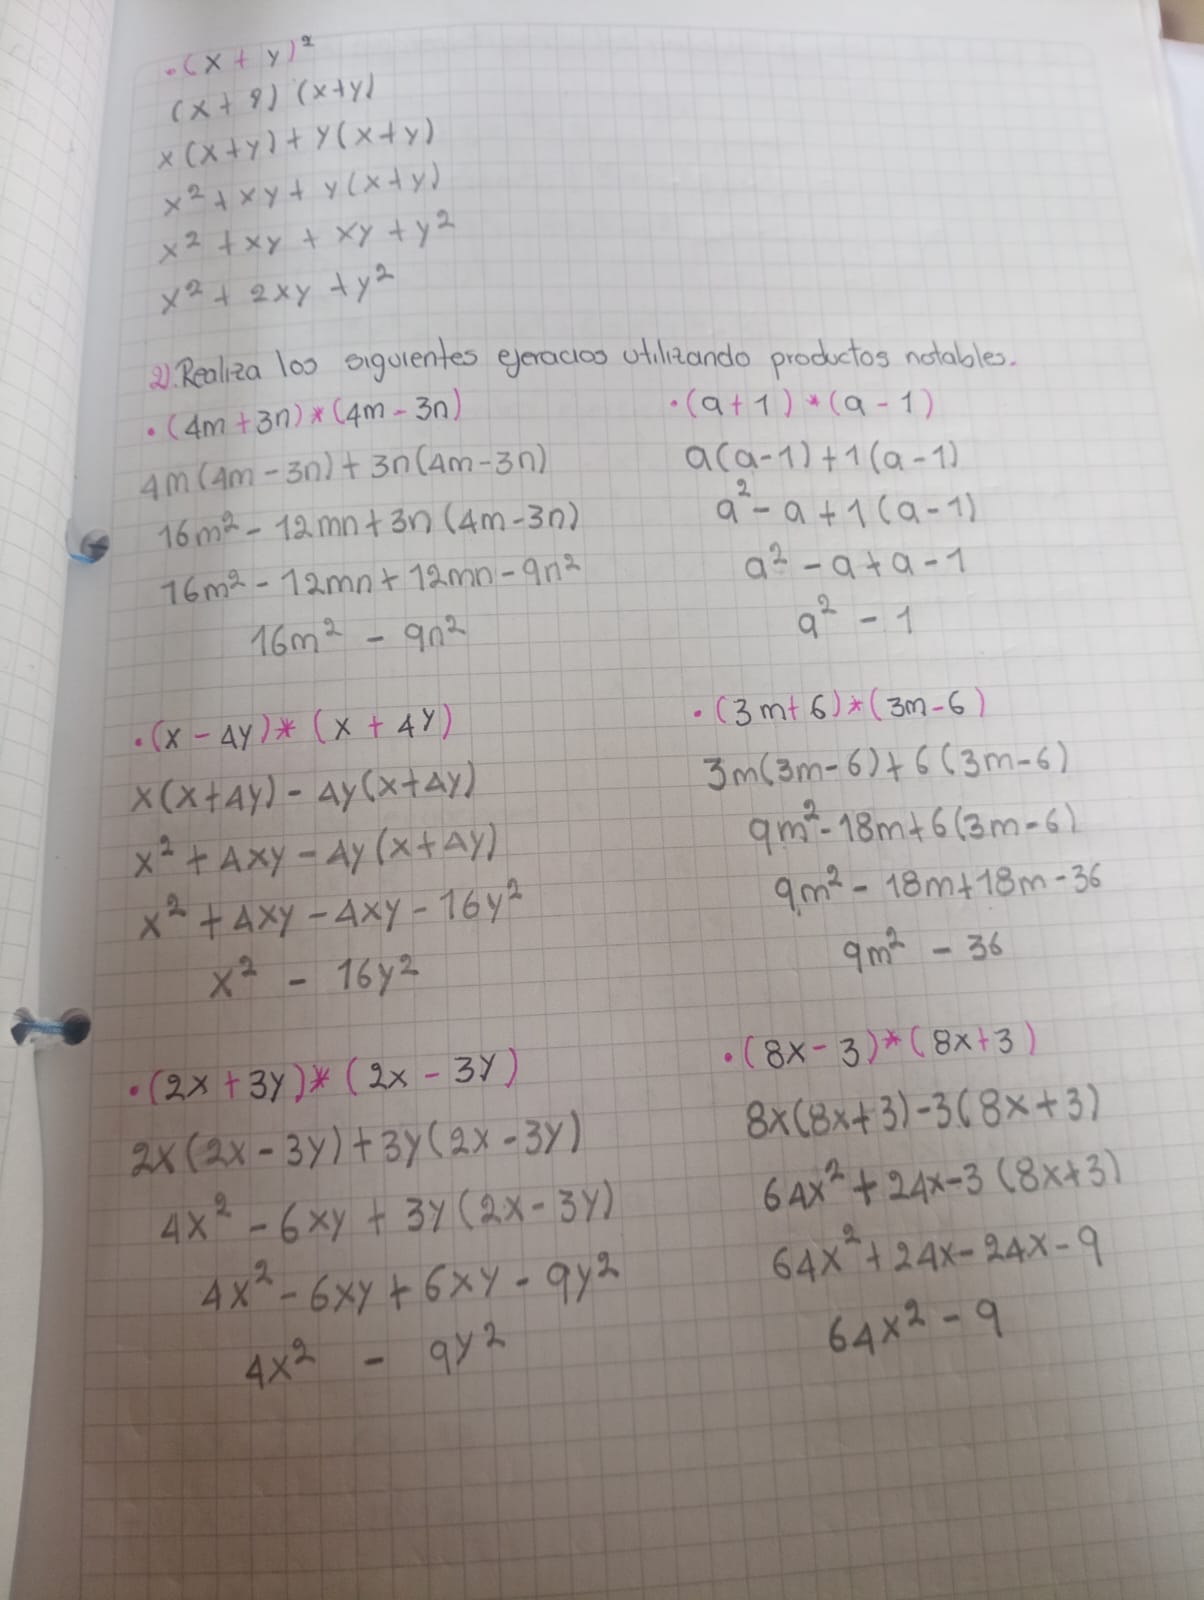 • (x + y)²
(x + y) (x+y)
x(x+y) + y(x+y)
x² + xy + y(x+y)
x² + xy + xy + y²
x² + 2xy + y²
2). Realiza los siguientes ejercicios utilizando productos notables.
• (4m + 3n) * (4m - 3n)
4m(4m - 3n) + 3n(4m - 3n)
16m² - 12mn + 3n (4m - 3n)
16m² - 12mn + 12mn - 9n²
16m² - 9n²
• (a + 1) * (a - 1)
a(a-1) + 1(a-1)
a² - a + 1(a-1)
a² - a + a - 1
a² - 1
• (x - 4y) * (x + 4y)
x(x+4y) - 4y(x+4y)
x² + 4xy - 4y(x+4y)
x² + 4xy - 4xy - 16y²
x² - 16y²
• (3m + 6) * (3m - 6)
3m(3m-6) + 6(3m-6)
9m² - 18m + 6(3m-6)
9m² - 18m + 18m - 36
9m² - 36
• (2x + 3y) * (2x - 3y)
2x(2x - 3y) + 3y(2x - 3y)
4x² - 6xy + 3y(2x - 3y)
4x² - 6xy + 6xy - 9y²
4x² - 9y²
• (8x - 3) * (8x + 3)
8x(8x+3) - 3(8x+3)
64x² + 24x - 3 (8x+3)
64x² + 24x - 24x - 9
64x² - 9